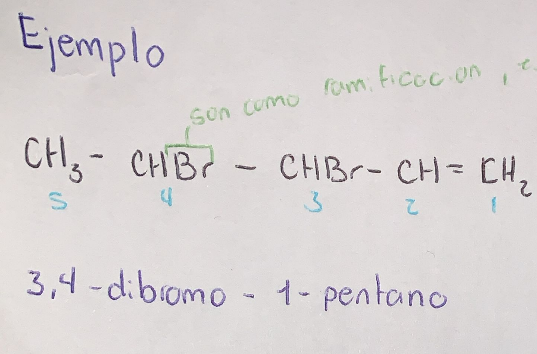 Ejemplo
son como ramificacion, e.
CH₃ - CHBr - CHBr - CH = CH₂
5 4 3 2 1
3,4 - dibromo - 1 - pentano